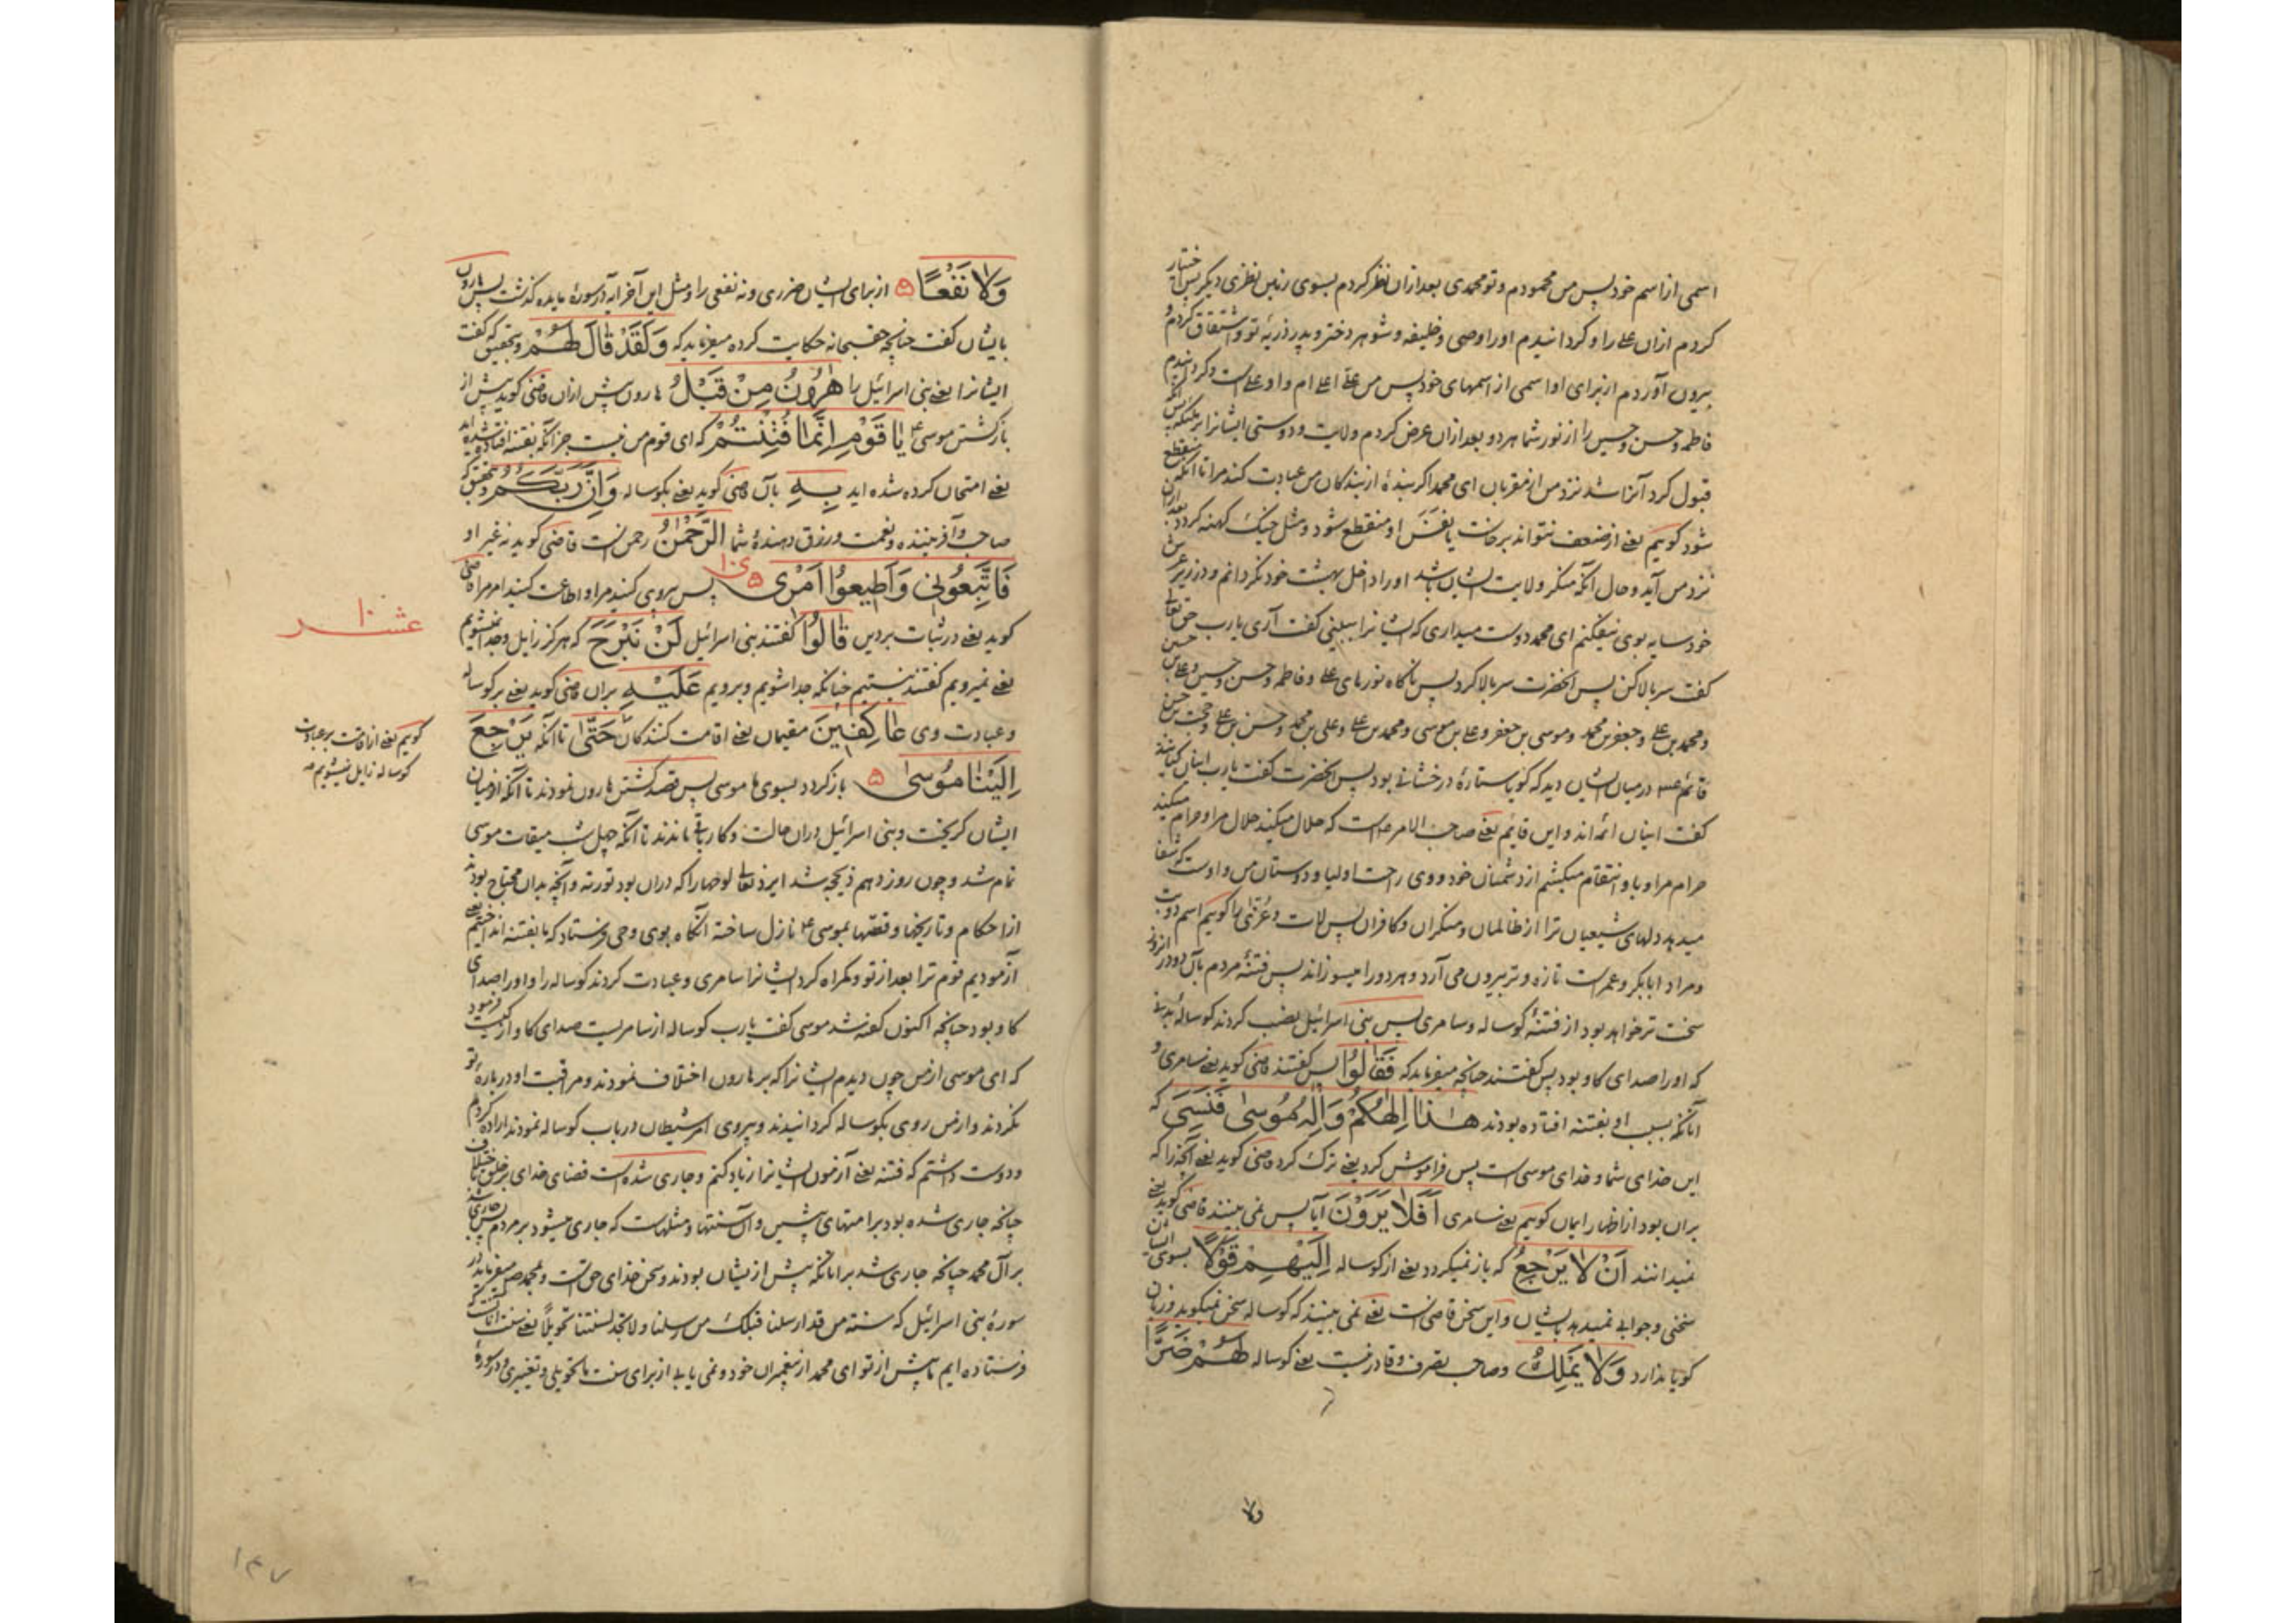 اسمی از اسم خود پس من محمودم و تو محمدی بعد ازان نظر کردم بسوی زمین نظری دیگر پس اختیار
کردم ازان علی را و کردانیدم او را وصی و خلیفه و شوهر دختر و پدر ذریهٔ تو و اشتقاق کردم و
بیرون آوردم از برای او اسمی از اسمهای خود پس من علی اعلی ام و او علی است و کردانیدم
فاطمه و حسن و حسین را از نور شما هر دو بعد ازان عرض کردم ولایت و دوستی ایشانرا بر ملئکه پس
قبول کرد آنرا شد نزد من از مقربان ای محمد اکر بندهٔ از بندکان من عبادت کند مرا تا آنکه منقطع
شود کوییم یعنی از ضعف نتواند برخاست یا نفس او منقطع شود و مثل خیک کهنه کردد بعد ازان
نزد من آید و حال آنکه منکر ولایت ایشان باشد او را داخل بهشت خود نکردانم و در زیر عرش
خود سایه بوی نیفکنم ای محمد دوست میداری که ایشانرا ببینی کفت آری یارب حق تعالی
کفت سر بالا کن پس آنحضرت سر بالا کرد پس ناکاه نورهای علی و فاطمه و حسن و حسین و علی بن حسین
و محمد بن علی و جعفر بن محمد و موسی بن جعفر و علی بن موسی و محمد بن علی و علی بن محمد و حسن بن علی و حجت بن حسن
قائم در میان ایشان دید که کویا ستارهٔ درخشانی بود پس آنحضرت کفت یارب اینان کیانند
کفت اینان ائمه اند و این قایم یعنی صاحب الامر است که حلال میکند حلال مرا و حرام میکند
حرام مرا و با و انتقام میکشم از دشمنان خود و وی راحت اولیا و دوستان من و اوست که شفا
میدهد دلهای شیعیان ترا از ظالمان و منکران و کافران پس لات و عزی را کوییم اسم دو بت
و مراد ابابکر و عمر است تازه و تر بیرون می آرد و هر دو را میسوزاند پس فتنهٔ مردم بآن دو در انروز
سخت تر خواهد بود از فتنهٔ کوساله و سامری پس بنی اسرائیل نصب کردند کوساله
که او را صدای کاو بود پس کفتند چنانچه میفرماید که فَقَالُوا پس کفتند قاضی کوید یعنی سامری و
آنانکه بسبب او بفتنه افتاده بودند هٰذَا اِلٰهُكُمْ وَاِلٰهُ مُوسٰی فَنَسِیَ که
این خدای شما و خدای موسی است پس فراموش کرد یعنی ترک کرد قاضی کوید یعنی آنچه را که
بران بود از اظهار ایمان کوییم یعنی سامری اَفَلَا یَرَوْنَ آیا پس نمی بینند قاضی کوید یعنی
نمیدانند اَنْ لَا یَرْجِعُ که باز نمیکردد یعنی از کوساله اِلَیْهِمْ قَوْلًا بسوی ایشان
سخنی و جوابی نمیدهد بایشان و این سخن قاضی است یعنی نمی بینند که کوساله سخن نمیکوید و زبان
کویا ندارد وَلَا یَمْلِكُ و صاحب تصرف و قادر نیست یعنی کوساله لَهُمْ ضَرًّا
ولا
وَلَا نَفْعًا از برای ایشان ضرری و نه نفعی را و مثل این آخر آیه در سورهٔ مایده کذشت پس هارون
بایشان کفت چنانچه حقسبحانه حکایت کرده میفرماید که وَلَقَدْ قَالَ لَهُمْ و بتحقیق که کفت
ایشانرا یعنی بنی اسرائیل را هٰرُونُ مِنْ قَبْلُ هارون پیش ازان قاضی کوید پیش از
بازکشتن موسی ع یَا قَوْمِ اِنَّمَا فُتِنْتُمْ که ای قوم من نیست جز آنکه بفتنه افتاده شده اید
یعنی امتحان کرده شده اید بِهِ بآن قاضی کوید یعنی بکوساله وَاِنَّ رَبَّكُمُ و بتحقیق که
صاحب و آفریننده و نعمت و رزق دهندهٔ شما الرَّحْمٰنُ رحمن است قاضی کوید نه غیر او
فَاتَّبِعُونِی وَاَطِیعُوا اَمْرِی پس پیروی کنید مرا و اطاعت کنید امر مرا قاضی
کوید یعنی در ثبات بر دین قَالُوا کفتند بنی اسرائیل لَنْ نَبْرَحَ که هرکز زایل و جدا نمیشویم
یعنی نمیرویم کفتند نیستیم چنانکه جدا شویم و برویم عَلَیْهِ بران قاضی کوید یعنی بر کوساله
و عبادت وی عَاكِفِینَ مقیمان یعنی اقامت کنندکان حَتّٰی تا آنکه یَرْجِعَ
اِلَیْنَا مُوسٰی باز کردد بسوی ما موسی پس قصد کشتن هارون نمودند تا آنکه از میان
ایشان کریخت و بنی اسرائیل دران حالت و کار باقی ماندند تا آنکه چهل شب میقات موسی
تمام شد و چون روز دهم ذیحجه شد ایزد تعالی لوحها را که دران بود تورته و آنچه بدان محتاج بودند
از احکام و تاریخها و قصّها بموسی ع نازل ساخته آنکاه بوی وحی فرستاد که ما بفتنه انداختیم یعنی
آزمودیم قوم ترا بعد از تو و کمراه کرد ایشانرا سامری و عبادت کردند کوساله را و او را صدای
کاو بود چنانچه اکنون کفته شد موسی کفت یارب کوساله از سامریست صدای کاو از کیست فرمود
که ای موسی از من چون دیدم ایشانرا که بر هارون اختلاف نمودند و مراقبت او در بارهٔ تو
نکردند و از من روی بکوساله کردانیدند و پیروی امر شیطان در باب کوساله نمودند اراده کردم
و دوست داشتم که فتنه یعنی آزمون ایشانرا زیاد کنم و جاری شده است قضای خدای بر خلق باختلاف
چنانچه جاری شده بود بر امتهای پیشین و آن سنتها و مثلهاست که جاری میشود بر مردم پس جاری شد
بر آل محمد چنانچه جاری شد بر آنانکه پیش ازیشان بودند و سخن خدای حق است و بمحمد ص میفرماید در
سورهٔ بنی اسرائیل که سنة من قد ارسلنا قبلک من رسلنا ولا تجد لسنتنا تحویلاً یعنی سنت آنانست که
فرستاده ایم ما پیش از تو ای محمد از پیغمبران خود و نمی یابی از برای سنت ما تحویلی و تغییری و در سورهٔ
عشر
کوییم یعنی از اقامت بر عبادت
کوساله زایل نمیشویم
۱۴۷